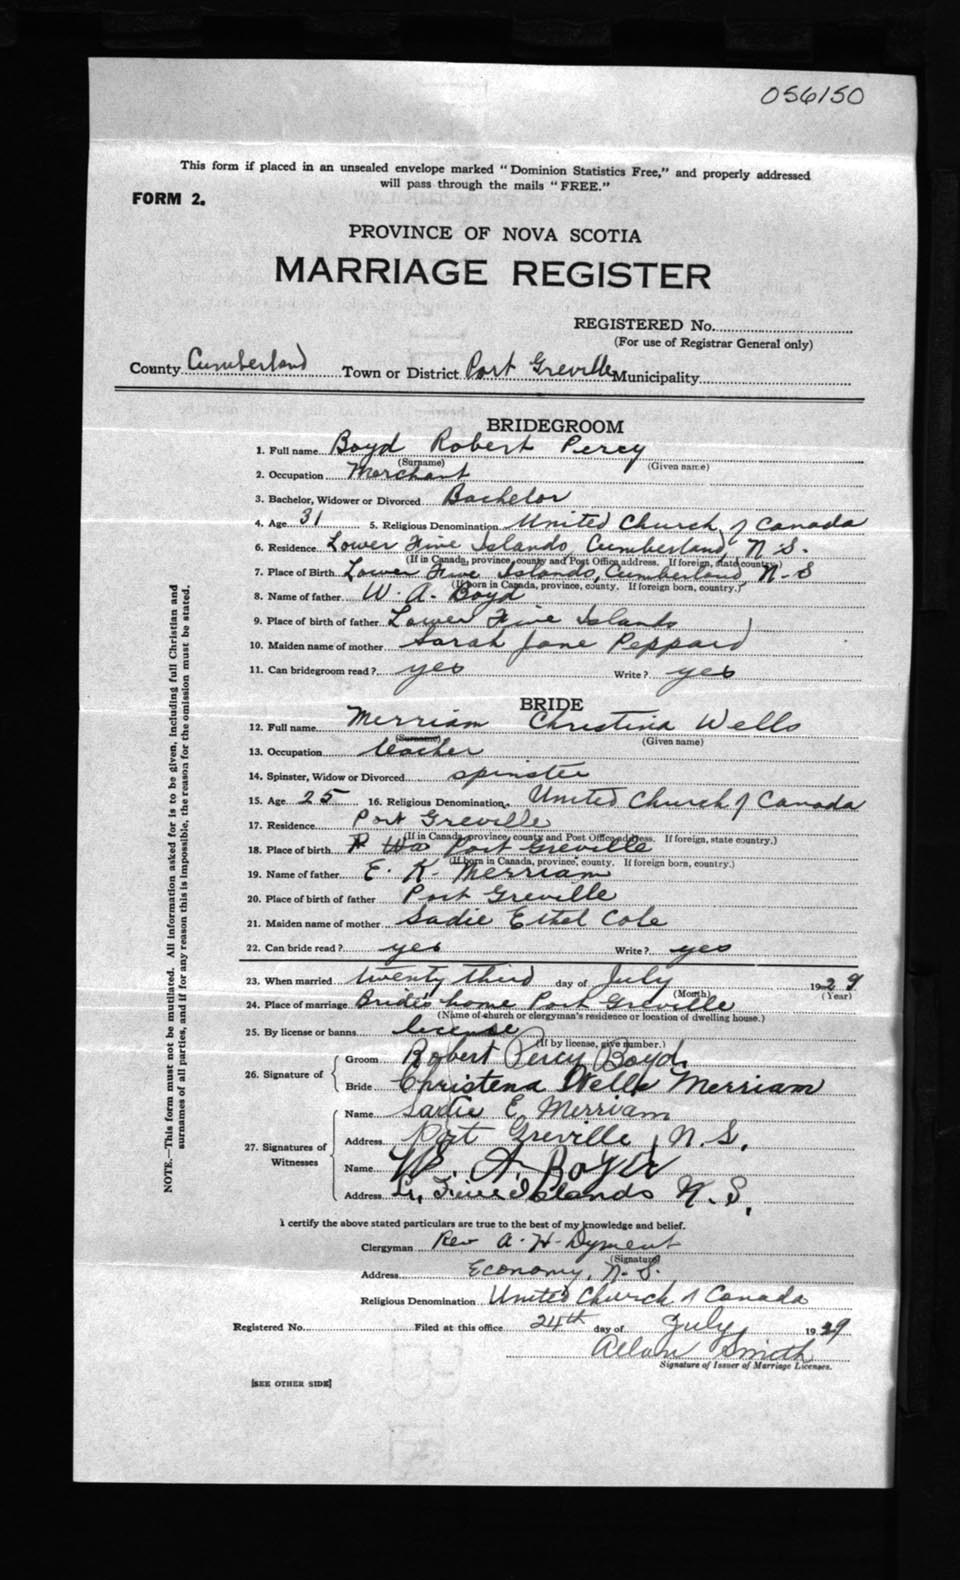 056150
This form if placed in an unsealed envelope marked "Dominion Statistics Free," and properly addressed
will pass through the mails "FREE."
FORM 2.
PROVINCE OF NOVA SCOTIA
MARRIAGE REGISTER
REGISTERED No.
(For use of Registrar General only)
County Cumberland Town or District Port Greville Municipality
BRIDEGROOM
1. Full name Boyd Robert Percy
(Surname) (Given name)
2. Occupation Merchant
3. Bachelor, Widower or Divorced Bachelor
4. Age 31 5. Religious Denomination United Church of Canada
6. Residence Lower Five Islands, Cumberland, N.S.
(If in Canada, province, county and Post Office address. If foreign, state country.)
7. Place of Birth Lower Five Islands, Cumberland, N.S
(If born in Canada, province, county. If foreign born, country.)
8. Name of father W. A. Boyd
9. Place of birth of father Lower Five Islands
10. Maiden name of mother Sarah Jane Peppard
11. Can bridegroom read? yes Write? yes
BRIDE
12. Full name Merriam Christina Wells
(Surname) (Given name)
13. Occupation teacher
14. Spinster, Widow or Divorced spinster
15. Age 25 16. Religious Denomination United Church of Canada
17. Residence Port Greville
(If in Canada, province, county and Post Office address. If foreign, state country.)
18. Place of birth Port Greville
(If born in Canada, province, county. If foreign born, country.)
19. Name of father E. K. Merriam
20. Place of birth of father Port Greville
21. Maiden name of mother Sadie Ethel Cole
22. Can bride read? yes Write? yes
23. When married twenty third day of July 1929
(Month) (Year)
24. Place of marriage Bride's home Port Greville
(Name of church or clergyman's residence or location of dwelling house.)
25. By license or banns license
(If by license, give number.)
26. Signature of
Groom Robert Percy Boyd.
Bride Christena Wells Merriam
27. Signatures of Witnesses
Name Sadie E. Merriam
Address Port Greville, N.S.
Name W. A. Boyd
Address Lr. Five Islands N.S.
I certify the above stated particulars are true to the best of my knowledge and belief.
Clergyman Rev A. H. Dyment
(Signature)
Address Economy, N.S.
Religious Denomination United Church of Canada
Registered No. Filed at this office 24th day of July 1929
Allan Smith
Signature of Issuer of Marriage Licenses.
[SEE OTHER SIDE]
NOTE.—This form must not be mutilated. All information asked for is to be given, including full Christian and
surnames of all parties, and if for any reason this is impossible, the reason for the omission must be stated.